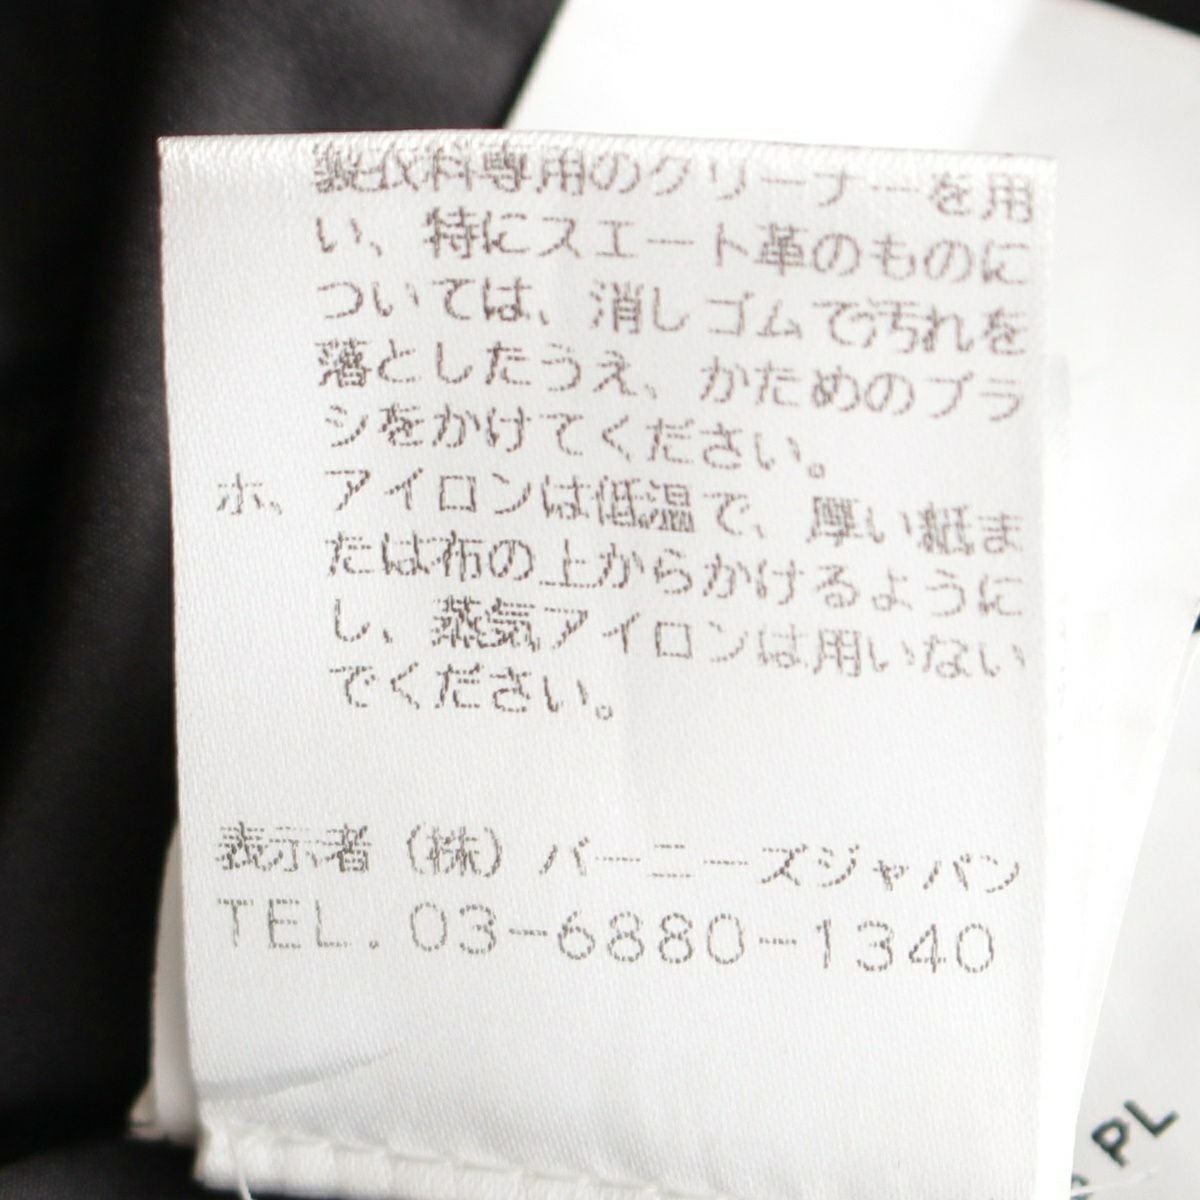 製衣料専用のクリーナーを用
い、特にスエート革のものに
ついては、消しゴムで汚れを
落としたうえ、かためのブラ
シをかけてください。
ホ、アイロンは低温で、厚い紙ま
たは布の上からかけるように
し、蒸気アイロンは用いない
でください。
表示者（株）バーニーズジャパン
TEL. 03-6880-1340
PL